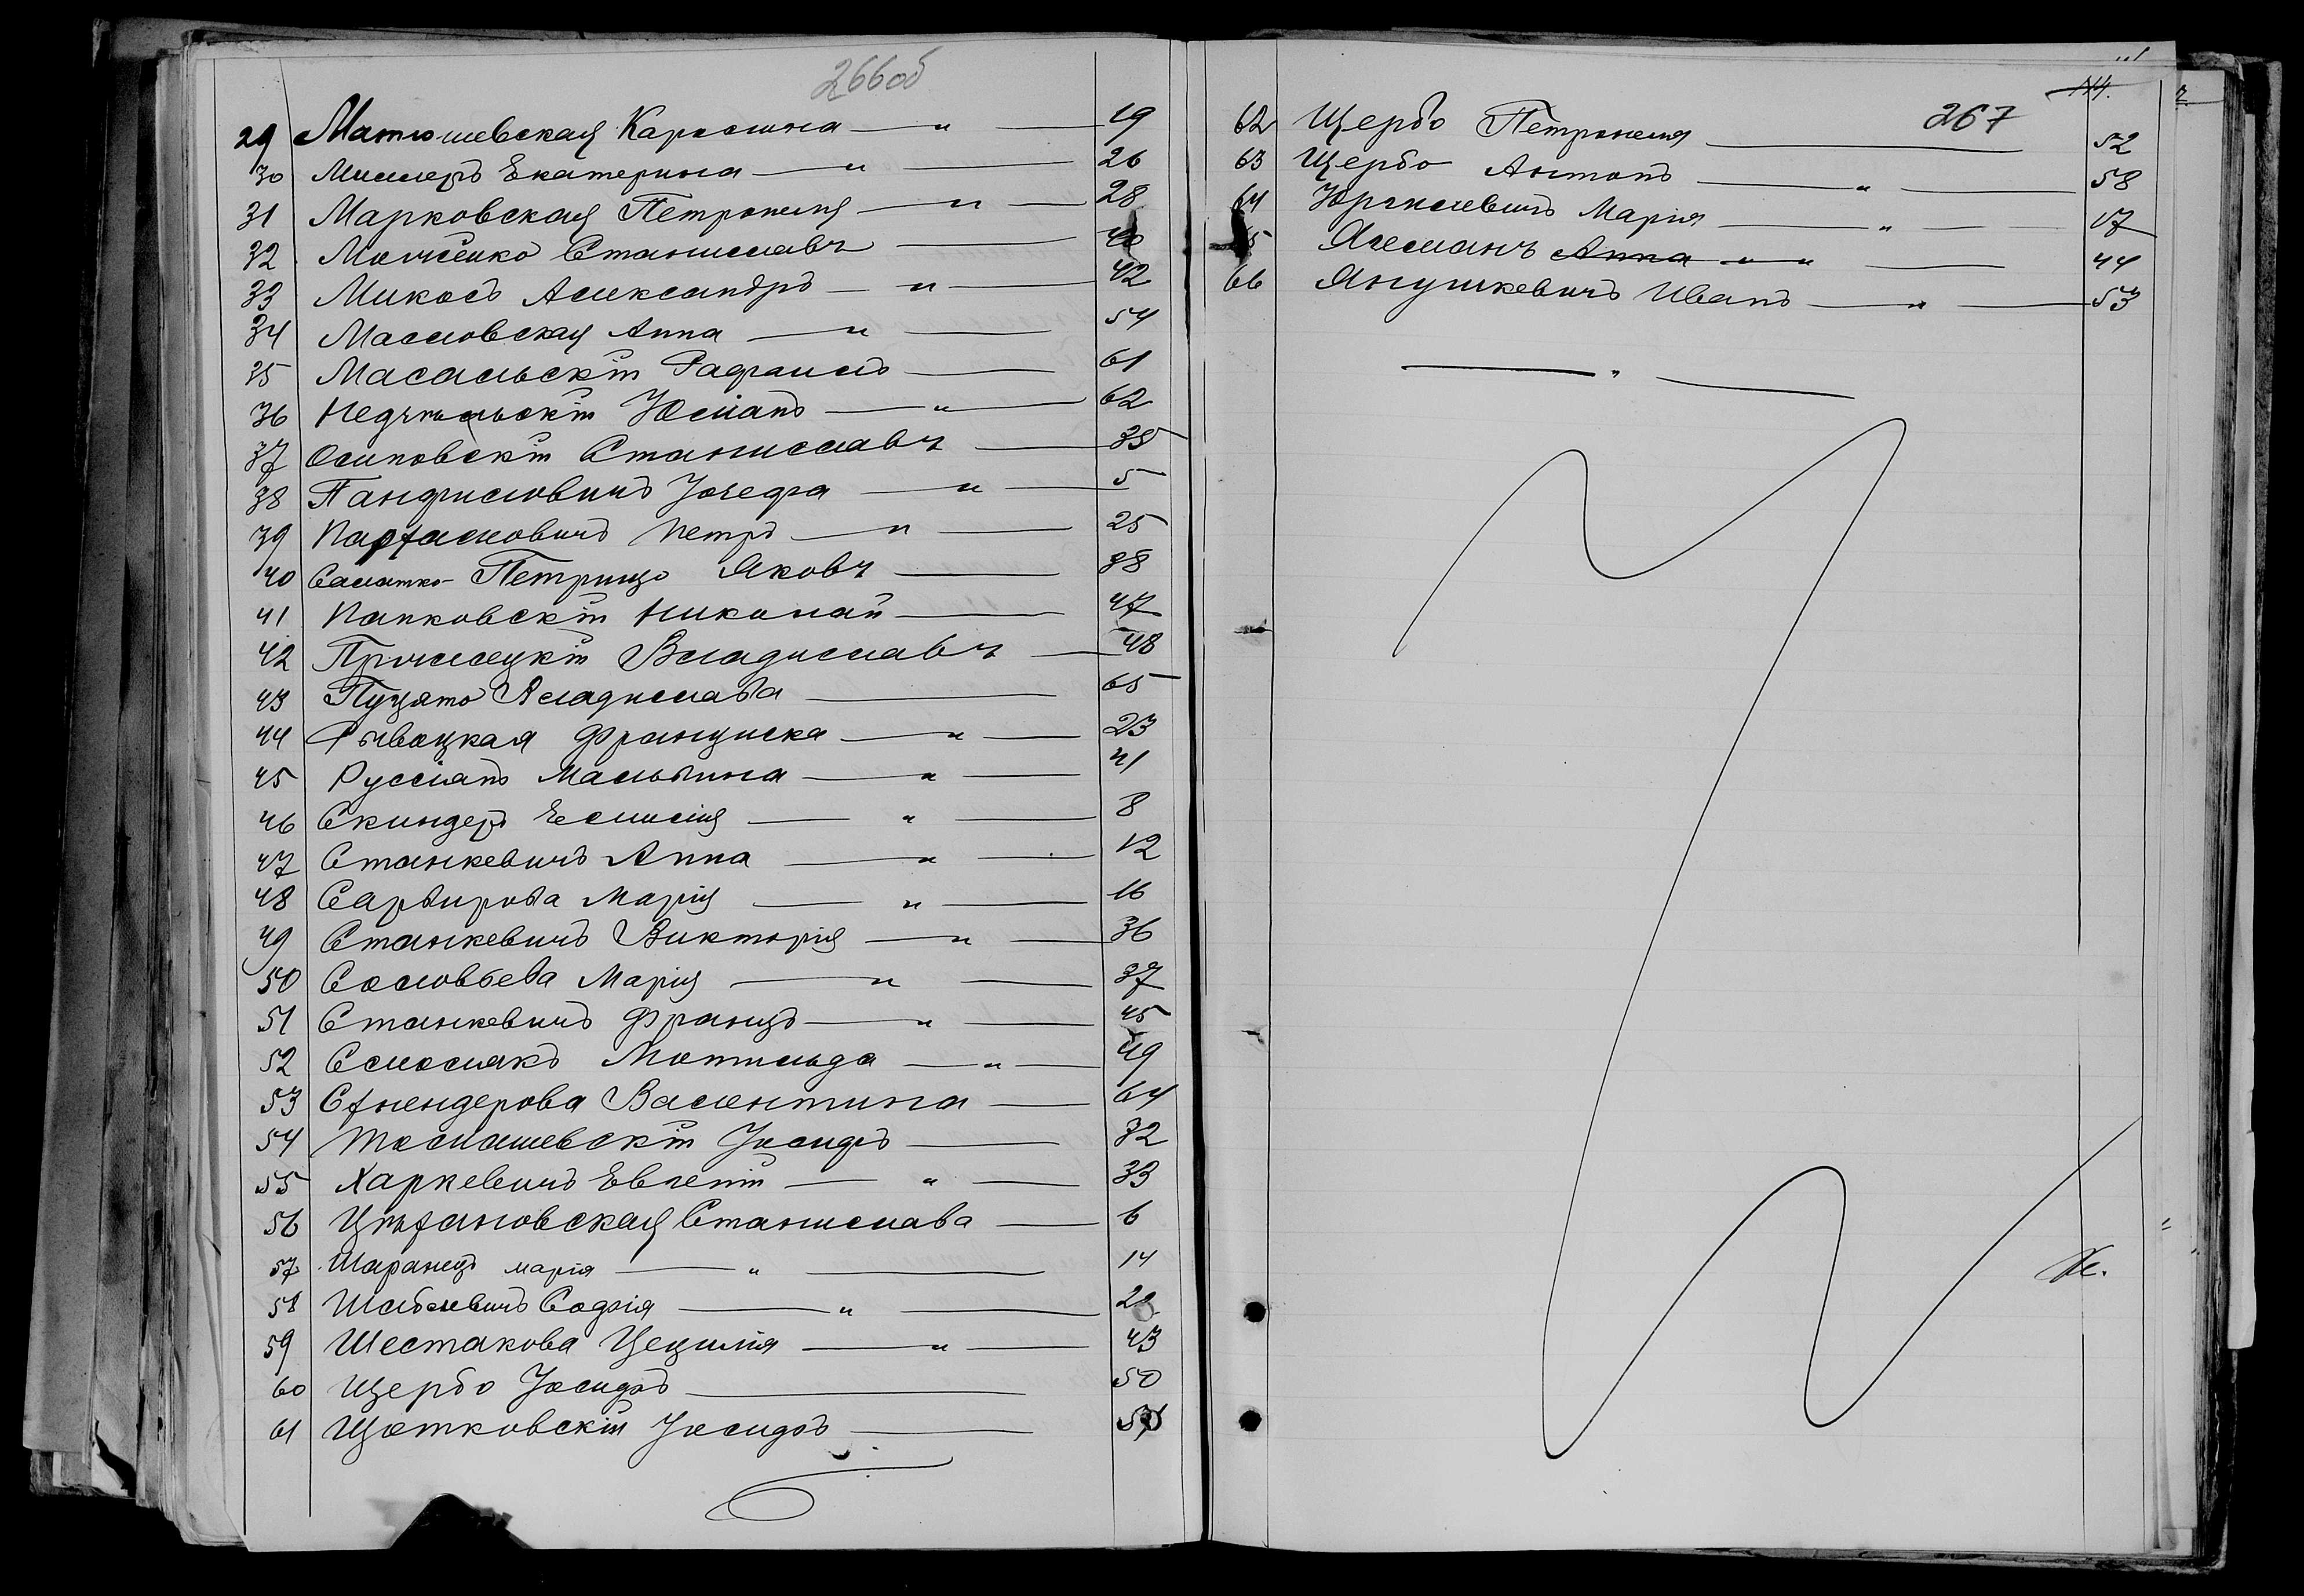 266об
29 Матюшевская Каролина — " — 19
30 Миллеръ Екатерина — " — 26
31 Марковская Петронеля — " — 28
32 Станиславъ — 40
33 Микосъ Александръ — " — 42
34 Масловская Анна — " — 54
35 Масальскій — 61
36 Юліанъ — " — 62
37 Осиповскій Станиславъ — 35
38 Іозефа — " — 5
39 Петръ — " — 25
40 Яковъ — 38
41 Папковскій Николай — 47
42 Владиславъ — 48
43 Пуцято Владислава — 65
44 Франциска — " — 23
45 Руссіанъ Мальвина — " — 41
46 Скиндеръ — " — 8
47 Станкевичъ Анна — " — 12
48 Сарвирова Марія — " — 16
49 Станкевичъ Викторія — " — 36
50 Соловьева Марія — " — 37
51 Станкевичъ Францъ — " — 45
52 Смолякъ Мотильда — " — 49
53 Валентина — 64
54 Томашевскій Іосифъ — 32
55 Харкевичъ Евгеній — " — 33
56 Станислава — 6
57 Шаранецъ Марія — " — 14
58 Софія — "
59 Шестакова Цецилія — " — 43
60 Щербо Іосифъ — 50
61 Щотковскій Іосифъ —
267
62 Щербо Петронеля — 52
63 Щербо Антонъ — " — 58
64 Юргилевичъ Марія — " — 17
Анна — " — 44
66 Янушкевичъ Иванъ — " — 53
— " —